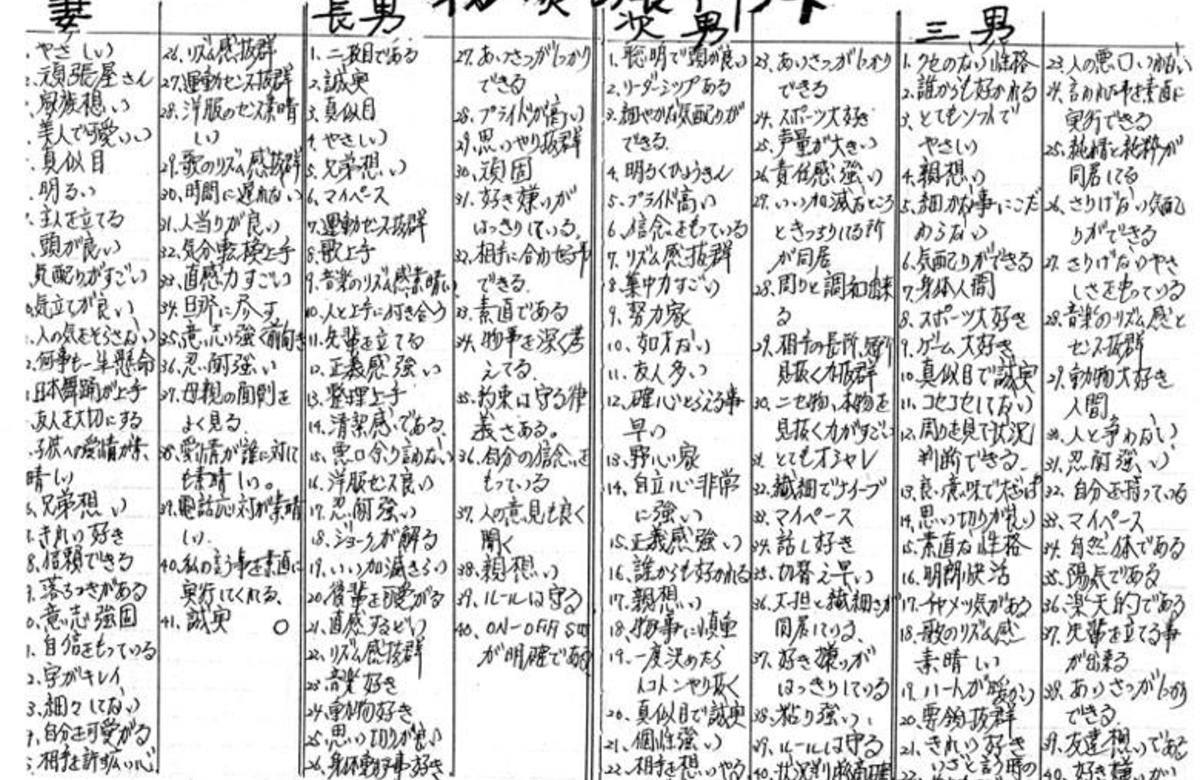 妻
やさしい
頑張屋さん
家族想い
美人で可愛いい
真似目
明るい
主人を立てる
頭が良い
気配りがすごい
気立てが良い
人の気をそらさない
何事も一生懸命
日本舞踊が上手
友人を大切にする
子供への愛情が素
晴しい
兄弟想い
きれい好き
信頼できる
落ちつきがある
意志強固
自信をもっている
字がキレイ
細々してない
自分を可愛がる
相手を許す広い心
26. リズム感抜群
27. 運動センス抜群
28. 洋服のセンス素晴
しい
29. 歌のリズム感抜群
30. 時間に遅れない
31. 人当りが良い
32. 気分転換上手
33. 直感力すごい
34. 旦那に尽す
35. 意志強く前向き
36. 忍耐強い
37. 母親の面倒を
よく見る
38. 愛情が誰に対して
も素晴しい。
39. 電話応対が素晴
しい
40. 私の言う事を素直に
実行してくれる。
41. 誠実
長男
1. 二枚目である
2. 誠実
3. 真似目
4. やさしい
5. 兄弟想い
6. マイペース
7. 運動センス抜群
8. 歌上手
9. 音楽のリズム感素晴い
10. 人と上手に付き合う
11. 先輩を立てる
12. 正義感強い
13. 整理上手
14. 清潔感である
15. 悪口余り言わない
16. 洋服センス良い
17. 忍耐強い
18. ジョークが解る
19. いい加減きらい
20. 後輩を可愛がる
21. 直感するどい
22. リズム感抜群
23. 音楽好き
24. 動物好き
25. 思い切りが良い
26. 身体動す事好き
27. あいさつがしっかり
できる
28. プライドが高い
29. 思いやり抜群
30. 頑固
31. 好き嫌いが
はっきりしている。
32. 相手に合わせる事
できる
33. 素直である
34. 物事を深く考
えてる
35. 約束は守る律
義さある。
36. 自分の信念を
もっている
37. 人の意見も良く
聞く
38. 親想い
39. ルールは守る
40. ON-OFFA SW
が明確である
次男
1. 聡明で頭が良い
2. リーダーシップある
3. 細やかな気配りが
できる
4. 明るくひょうきん
5. プライド高い
6. 信念をもっている
7. リズム感抜群
8. 集中力すごい
9. 努力家
10. 如才ない
11. 友人多い
12. 確心とらえる事
早い
13. 野心家
14. 自立心非常
に強い
15. 正義感強い
16. 誰からも好かれる
17. 親想い
18. 物事に慎重
19. 一度決めたら
トコトンやり抜く
20. 真似目で誠実
21. 個性強い
22. 相手を想いやる
23. あいさつがしっかり
できる
24. スポーツ大好き
25. 声量が大きい
26. 責任感強い
27. いいかげんなところ
ときっちりしてる所
が同居
28. 周りと調和出来
る
29. 相手の長所、短所
見抜く力抜群
30. ニセ物、本物を
見抜く力がすごい
31. とてもオシャレ
32. 繊細でナイーブ
33. マイペース
34. 話し好き
35. 切替え早い
36. 大担と繊細さが
同居している
37. 好き嫌いが
はっきりしている
38. 粘り強い
39. ルールは守る
40. 状況判断的確
三男
1. クセのない性格
2. 誰からも好かれる
3. とてもソフトで
やさしい
4. 親想い
5. 細かな事にこだ
わらない
6. 気配りができる
7. 身体人間
8. スポーツ大好き
9. ゲーム大好き
10. 真似目で誠実
11. コセコセしてない
12. 周りを見て状況
判断できる
13. 良い意味で
14. 思い切りが良い
15. 素直な性格
16. 明朗快活
17. チャメッ気がある
18. 歌のリズム感
素晴しい
19. ハートが暖かい
20. 要領抜群
21. きれい好き
22. いざと言う時の
23. 人の悪口いわない
24. 言われた事を素直に
実行できる
25. 純情と純粋が
同居してる
26. さりげない気配
りができる
27. さりげないやさ
しさをもっている
28. 音楽のリズム感と
センス抜群
29. 動物大好き
人間
30. 人と争わない
31. 忍耐強い
32. 自分を持っている
33. マイペース
34. 自然体である
35. 陽気である
36. 楽天的である
37. 先輩を立てる事
が出来る
38. あいさつがしっかり
できる
39. 友達想いである